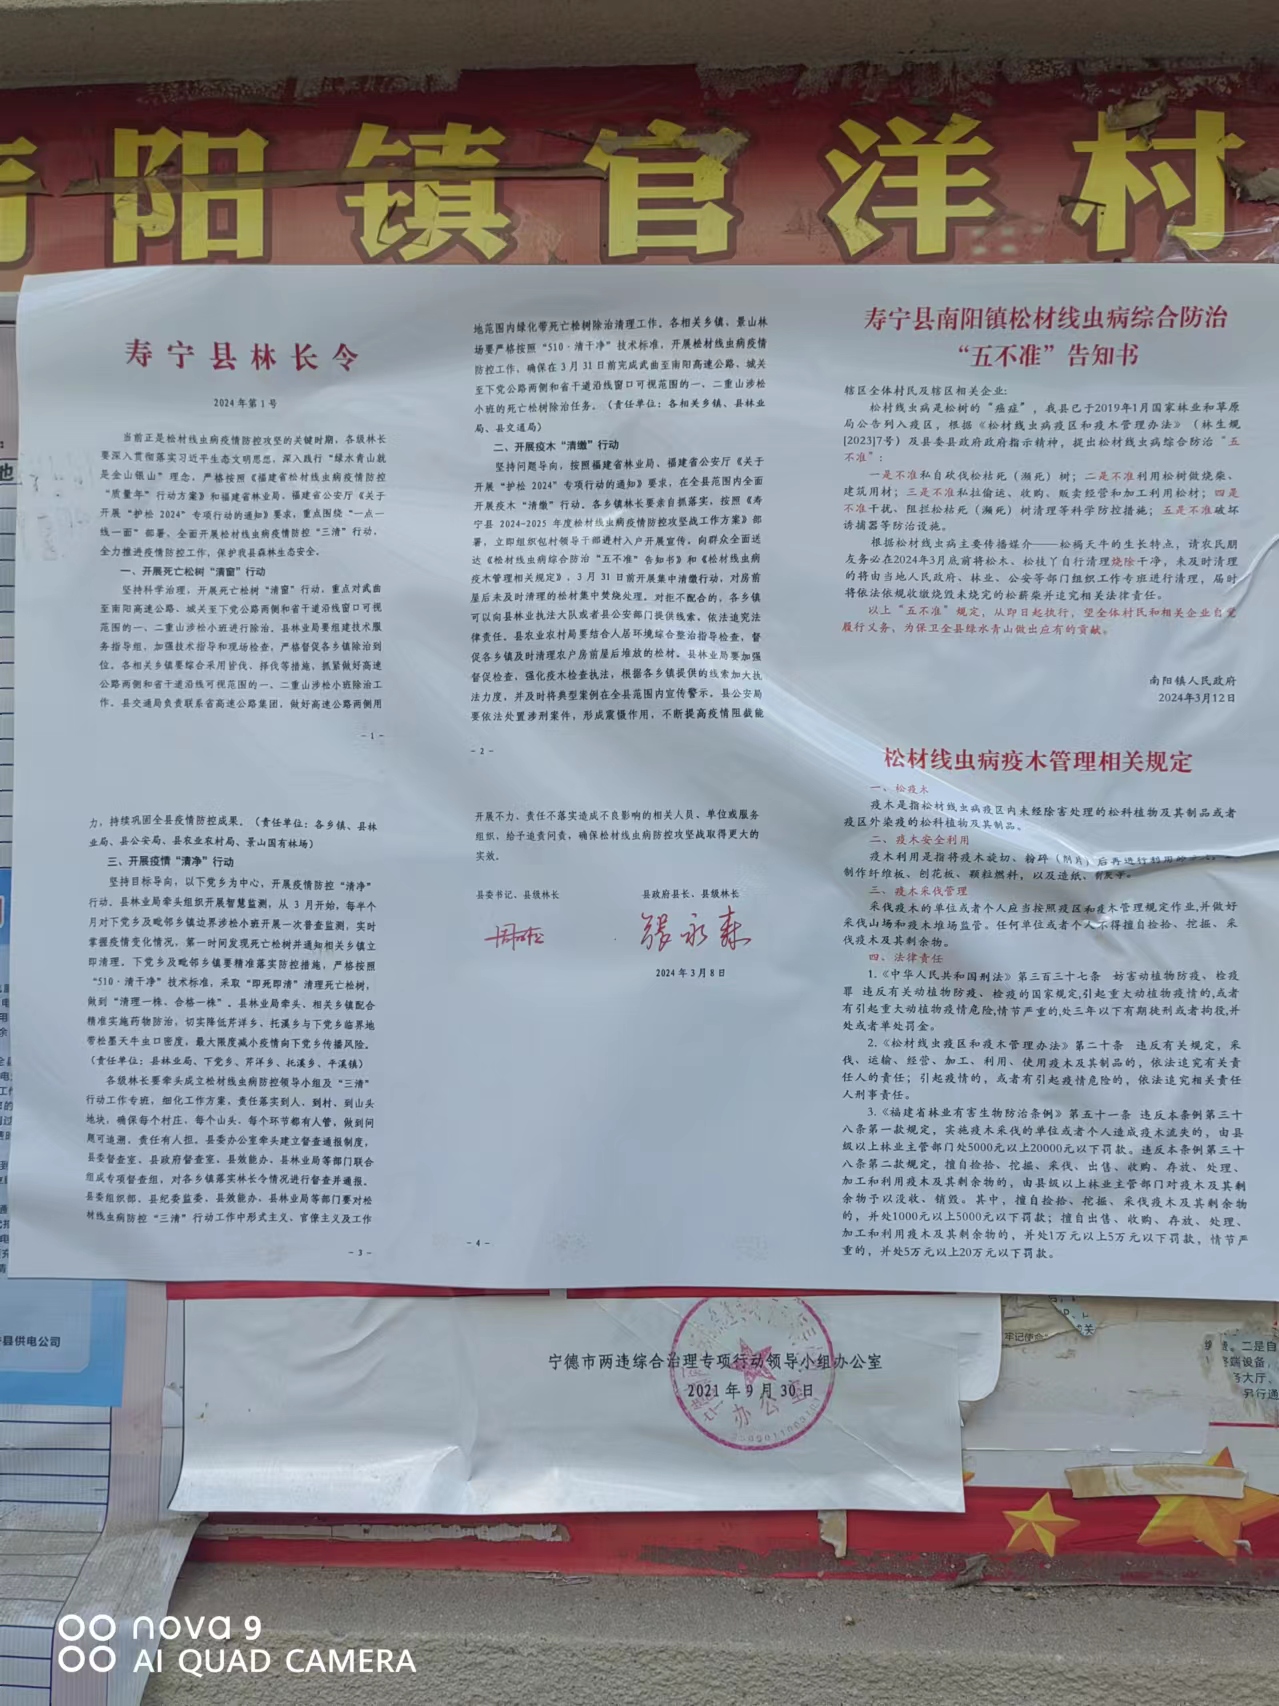 阳镇官洋村
寿宁县林长令
2024年第1号
当前正是松材线虫病疫情防控攻坚的关键时期，各级林长
要深入贯彻落实习近平生态文明思想，深入践行“绿水青山就
是金山银山”理念，严格按照《福建省松材线虫病疫情防控
“质量年”行动方案》和福建省林业局、福建省公安厅《关于
开展“护松2024”专项行动的通知》要求，重点围绕“一点一
线一面”部署，全面开展松材线虫病疫情防控“三清”行动，
全力推进疫情防控工作，保护我县森林生态安全。
一、开展死亡松树“清窗”行动
坚持科学治理，开展死亡松树“清窗”行动，重点对武曲
至南阳高速公路、城关至下党公路两侧和省干道沿线窗口可视
范围的一、二重山涉松小班进行除治。县林业局要组建技术服
务指导组，加强技术指导和现场检查，严格督促各乡镇除治到
位。各相关乡镇要综合采用皆伐、择伐等措施，抓紧做好高速
公路两侧和省干道沿线可视范围的一、二重山涉松小班除治工
作。县交通局负责联系省高速公路集团，做好高速公路两侧用
-1-
地范围内绿化带死亡松树除治清理工作。各相关乡镇、景山林
场要严格按照“510·清干净”技术标准，开展松材线虫病疫情
防控工作，确保在3月31日前完成武曲至南阳高速公路、城关
至下党公路两侧和省干道沿线窗口可视范围的一、二重山涉松
小班的死亡松树除治任务。（责任单位：各相关乡镇、县林业
局、县交通局）
二、开展疫木“清缴”行动
坚持问题导向，按照福建省林业局、福建省公安厅《关于
开展“护松2024”专项行动的通知》要求，在全县范围内全面
开展疫木“清缴”行动。各乡镇林长要亲自抓落实，按照《寿
宁县2024-2025年度松材线虫病疫情防控攻坚战工作方案》部
署，立即组织包村领导干部进村入户开展宣传，向群众全面送
达《松材线虫病综合防治“五不准”告知书》和《松材线虫病
疫木管理相关规定》，3月31日前开展集中清缴行动，对房前
屋后未及时清理的松材集中焚烧处理。对拒不配合的，各乡镇
可以向县林业执法大队或者县公安部门提供线索，依法追究法
律责任。县农业农村局要结合人居环境综合整治指导检查，督
促各乡镇及时清理农户房前屋后堆放的松材。县林业局要加强
督促检查，强化疫木检查执法，根据各乡镇提供的线索加大执
法力度，并及时将典型案例在全县范围内宣传警示。县公安局
要依法处置涉刑案件，形成震慑作用，不断提高疫情阻截能
-2-
力，持续巩固全县疫情防控成果。（责任单位：各乡镇、县林
业局、县公安局、县农业农村局、景山国有林场）
三、开展疫情“清净”行动
坚持目标导向，以下党乡为中心，开展疫情防控“清净”
行动。县林业局牵头组织开展智慧监测，从3月开始，每半个
月对下党乡及毗邻乡镇边界涉松小班开展一次普查监测，实时
掌握疫情变化情况，第一时间发现死亡松树并通知相关乡镇立
即清理。下党乡及毗邻乡镇要精准落实防控措施，严格按照
“510·清干净”技术标准，采取“即死即清”清理死亡松树，
做到“清理一株、合格一株”。县林业局牵头、相关乡镇配合
精准实施药物防治，切实降低芹洋乡、托溪乡与下党乡临界地
带松墨天牛虫口密度，最大限度减小疫情向下党乡传播风险。
（责任单位：县林业局、下党乡、芹洋乡、托溪乡、平溪镇）
各级林长要牵头成立松材线虫病防控领导小组及“三清”
行动工作专班，细化工作方案，责任落实到人、到村、到山头
地块，确保每个村庄、每个山头、每个环节都有人管，做到问
题可追溯，责任有人担。县委办公室牵头建立督查通报制度，
县委督查室、县政府督查室、县效能办、县林业局等部门联合
组成专项督查组，对各乡镇落实林长令情况进行督查并通报。
县委组织部、县纪委监委、县效能办、县林业局等部门要对松
材线虫病防控“三清”行动工作中形式主义、官僚主义及工作
-3-
开展不力、责任不落实造成不良影响的相关人员、单位或服务
组织，给予追责问责，确保松材线虫病防控攻坚战取得更大的
实效。
县委书记、县级林长
县政府县长、县级林长
2024年3月8日
-4-
寿宁县南阳镇松材线虫病综合防治
“五不准”告知书
辖区全体村民及辖区相关企业:
松村线虫病是松树的“癌症”，我县已于2019年1月国家林业和草原
局公告列入疫区，根据《松材线虫病疫区和疫木管理办法》（林生规
[2023]7号）及县委县政府政府指示精神，提出松材线虫病综合防治“五
不准”：
一是不准私自砍伐松枯死（濒死）树；二是不准利用松树做烧柴、
建筑用材；三是不准私拉偷运、收购、贩卖经营和加工利用松材；四是
不准干扰、阻拦松枯死（濒死）树清理等科学防控措施；五是不准破坏
诱捕器等防治设施。
根据松材线虫病主要传播媒介——松褐天牛的生长特点，请农民朋
友务必在2024年3月底前将松木、松枝丫自行清理烧除干净，未及时清理
的将由当地人民政府、林业、公安等部门组织工作专班进行清理，届时
将依法依规收缴烧毁未烧完的松薪柴并追究相关法律责任。
以上“五不准”规定，从即日起执行，望全体村民和相关企业自觉
履行义务，为保卫全县绿水青山做出应有的贡献。
南阳镇人民政府
2024年3月12日
松材线虫病疫木管理相关规定
一、松疫木
疫木是指松材线虫病疫区内未经除害处理的松科植物及其制品或者
疫区外染疫的松科植物及其制品。
二、疫木安全利用
疫木利用是指将疫木旋切、粉碎（削片）后再进行利用
制作纤维板、刨花板、颗粒燃料，以及造纸、
三、疫木采伐管理
采伐疫木的单位或者个人应当按照疫区和疫木管理规定作业,并做好
采伐山场和疫木堆场监管。任何单位或者个人不得擅自捡拾、挖掘、采
伐疫木及其剩余物。
四、法律责任
1.《中华人民共和国刑法》第三百三十七条 妨害动植物防疫、检疫
罪 违反有关动植物防疫、检疫的国家规定,引起重大动植物疫情的,或者
有引起重大动植物疫情危险,情节严重的,处三年以下有期徒刑或者拘役,并
处或者单处罚金。
2.《松材线虫疫区和疫木管理办法》第二十条 违反有关规定，采
伐、运输、经营、加工、利用、使用疫木及其制品的，依法追究有关责
任人的责任；引起疫情的，或者有引起疫情危险的，依法追究相关责任
人刑事责任。
3.《福建省林业有害生物防治条例》第五十一条 违反本条例第三十
八条第一款规定，实施疫木采伐的单位或者个人造成疫木流失的，由县
级以上林业主管部门处5000元以上20000元以下罚款。违反本条例第三十
八条第二款规定，擅自捡拾、挖掘、采伐、出售、收购、存放、处理、
加工和利用疫木及其剩余物的，由县级以上林业主管部门对疫木及其剩
余物予以没收、销毁。其中，擅自捡拾、挖掘、采伐疫木及其剩余物
的，并处1000元以上5000元以下罚款；擅自出售、收购、存放、处理、
加工和利用疫木及其剩余物的，并处1万元以上5万元以下罚款，情节严
重的，并处5万元以上20万元以下罚款。
宁德市两违综合治理专项行动领导小组办公室
2021年9月30日
办公室
县供电公司
牢记使命
二是自
终端设备，
务大厅、
另行通
nova 9
AI QUAD CAMERA